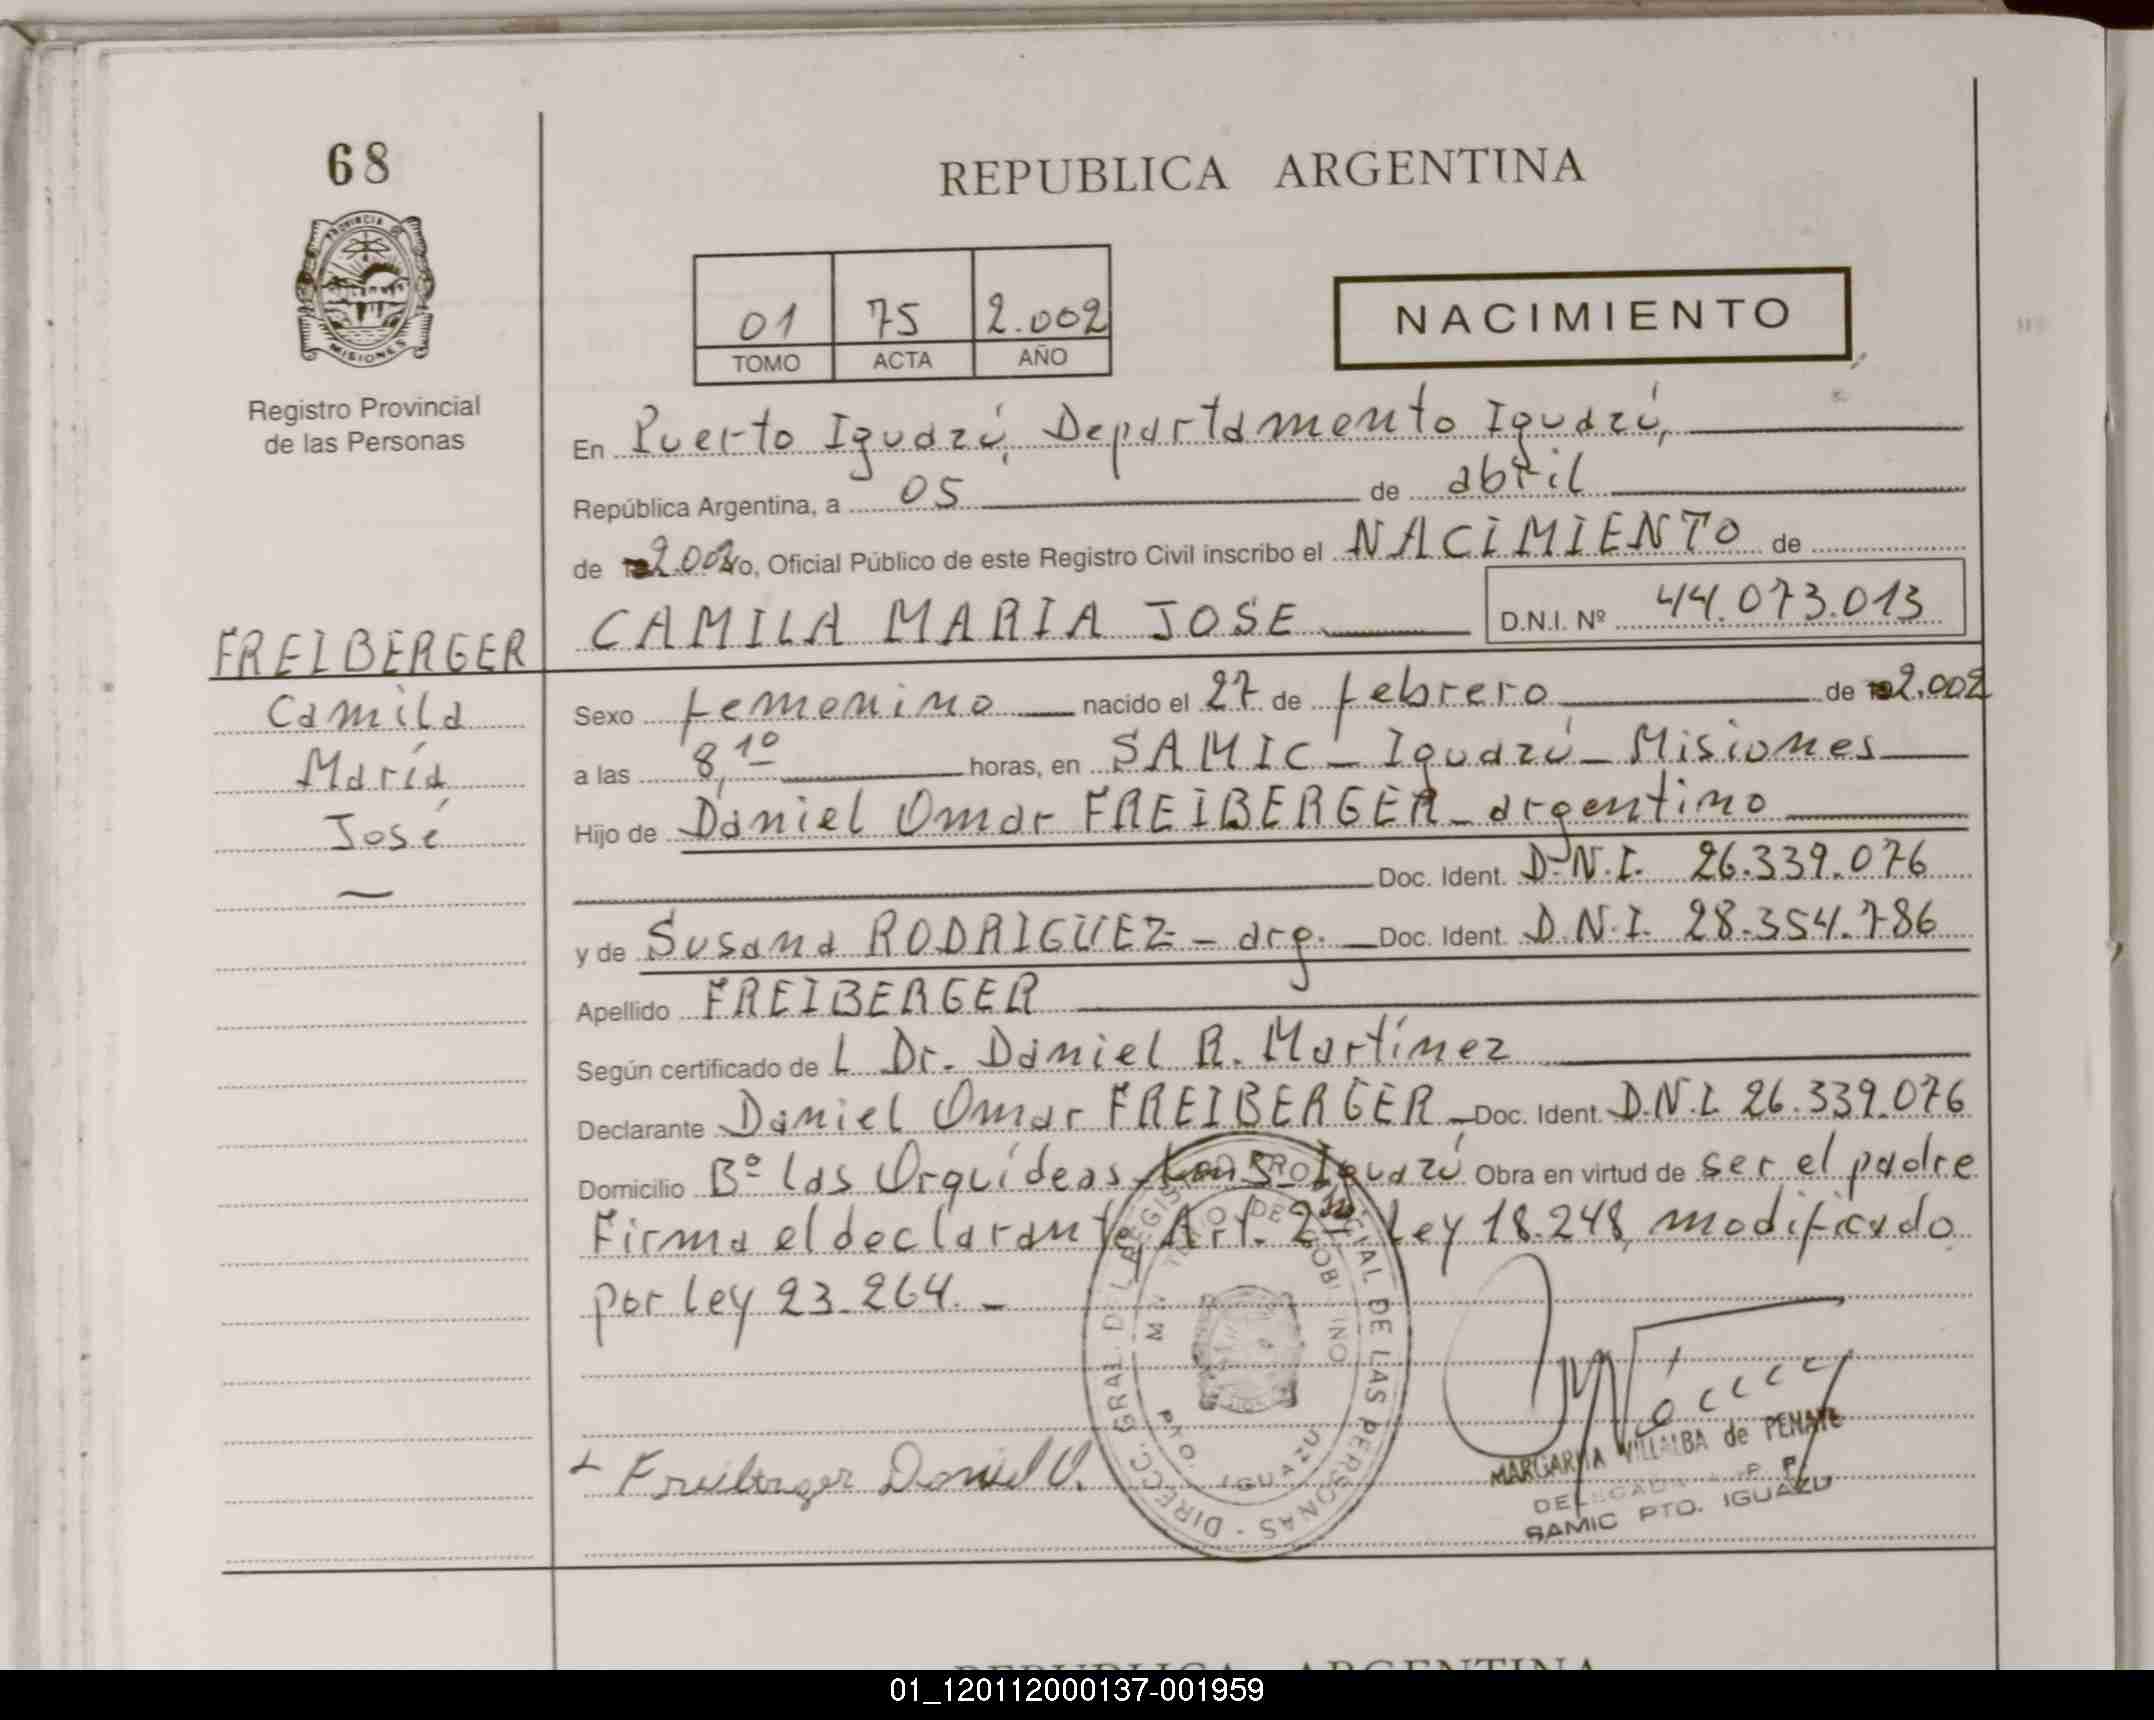 68
REPUBLICA ARGENTINA
PROVINCIA DE
MISIONES
Registro Provincial
de las Personas
01 75 2.002
TOMO ACTA AÑO
NACIMIENTO
En Puerto Iguazú, Departamento Iguazú,
República Argentina, a 05 de abril
de 2.002 yo, Oficial Público de este Registro Civil inscribo el NACIMIENTO de
CAMILA MARIA JOSE D.N.I. Nº 44.073.013
FREIBERGER
Camila
María
José
Sexo femenino nacido el 27 de febrero de 2.002
a las 8,10 horas, en SAMIC - Iguazú - Misiones
Hijo de Daniel Omar FREIBERGER - argentino
Doc. Ident. D.N.I. 26.339.076
y de Susana RODRIGUEZ - arg. Doc. Ident. D.N.I. 28.354.786
Apellido FREIBERGER
Según certificado de L Dr. Daniel R. Martínez
Declarante Daniel Omar FREIBERGER - Doc. Ident. D.N.I. 26.339.076
Domicilio Bº las Orquídeas Iguazú Obra en virtud de ser el padre
Firma el declarante, Art. 2º Ley 18.248, modificado
por Ley 23.264. -
Freiberger Daniel O.
DIRECC. GRAL. DEL REGISTRO PROVINCIAL DE LAS PERSONAS
PTO. IGUAZU
MARGARITA VILLALBA de PENAYE
SAMIC PTO. IGUAZU
REPUBLICA ARGENTINA
01_120112000137-001959